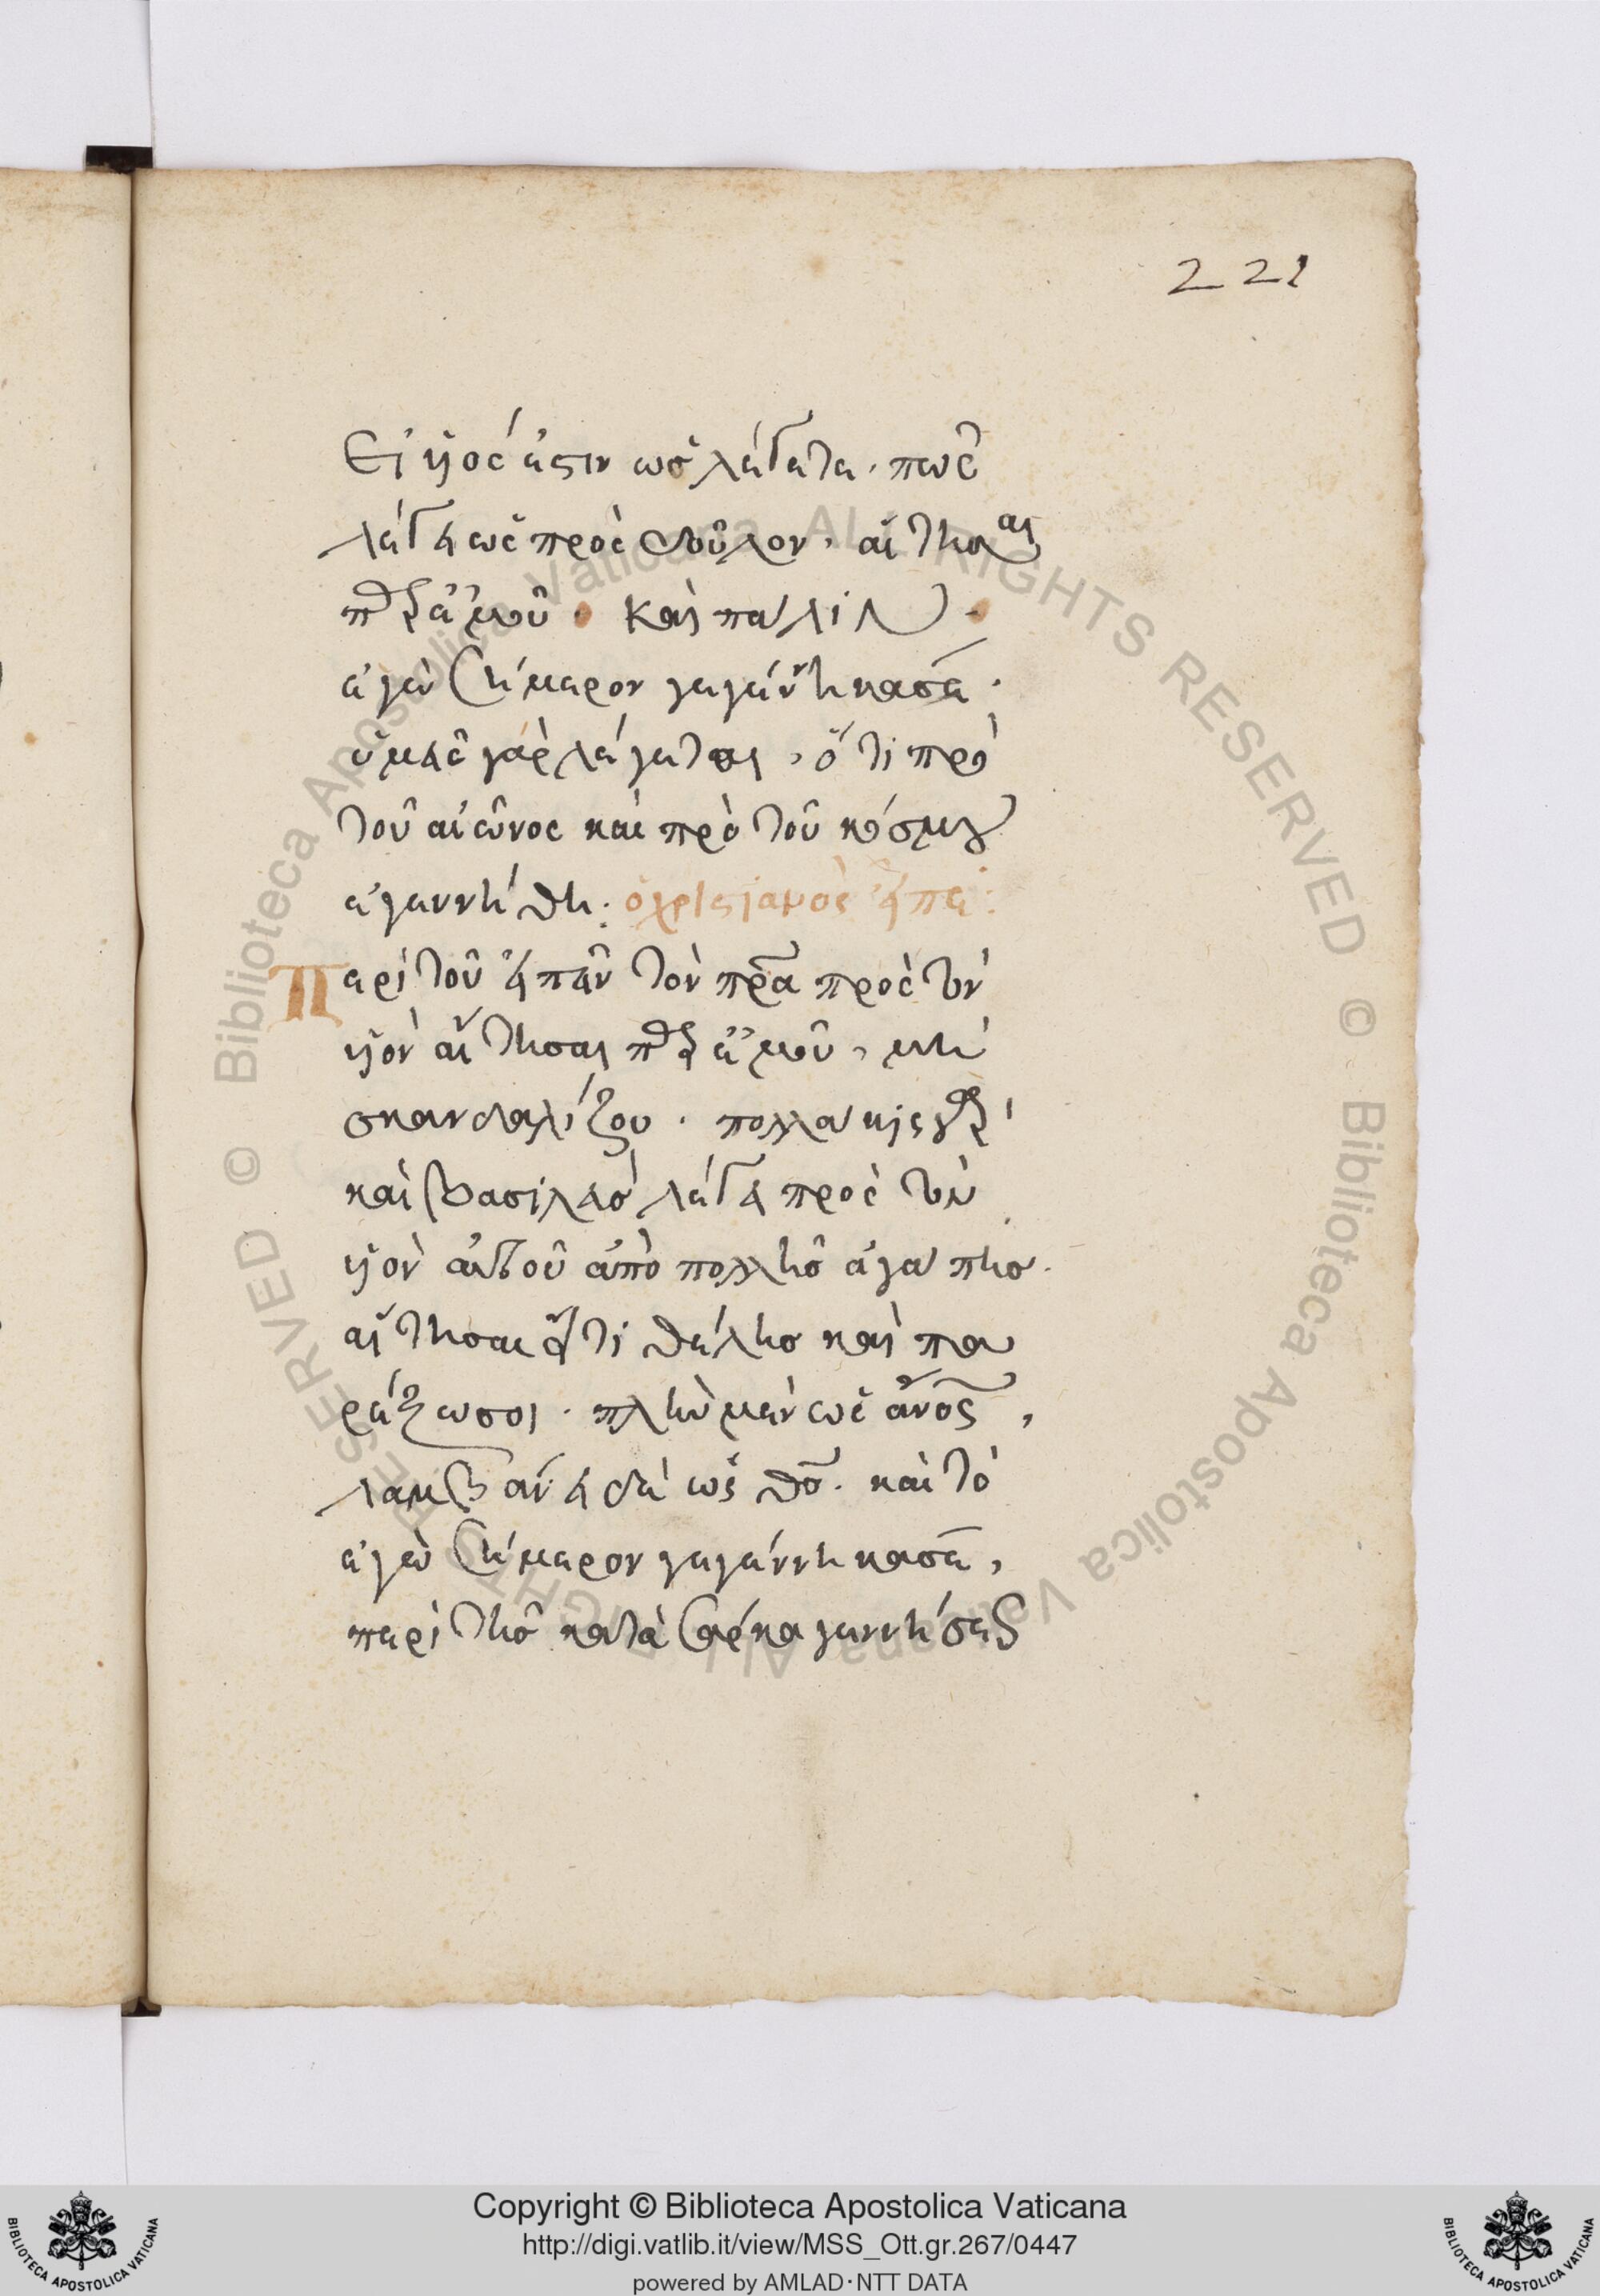 221
Εἰ ὑ̅ος ἐστιν ὡς λέγετε· πῶς
λέγει ὡς πρὸς δοῦλον, αἴτησαι
παρ' ἐμοῦ. Καὶ πάλιν.
ἐγὼ σήμερον γεγέννηκά σε·
ὑμεῖς γὰρ λέγεται, ὅτι πρὸ
τοῦ αἰῶνος καὶ πρὸ τοῦ κόσμου
ἐγεννήθη: ὁ χριστιανὸς εἶπε:
Περὶ τοῦ εἰπεῖν τὸν πρ̅α πρὸς τὸν
ὑ̅ον αἴτησαι παρ' ἐμοῦ, μὴ
σκανδαλίζου· πολλάκις γὰρ
καὶ βασιλεὺς λέγει πρὸς τὸν
ὑ̅ον αὐτοῦ ἀπὸ πολλῆς ἀγάπης.
αἴτησαι εἴ τι θέλης καὶ πα
ρέξω σοι· πλὴν μὲν ὡς ἄν̅ο̅ς,
λαμβάνει δὲ ὡς θ̅ς. καὶ τὸ
ἐγὼ σήμερον γεγέννηκά σε,
περὶ τῆς κατὰ σάρκα γεννήσεως
Copyright © Biblioteca Apostolica Vaticana
http://digi.vatlib.it/view/MSS_Ott.gr.267/0447
powered by AMLAD·NTT DATA
BIBLIOTECA APOSTOLICA VATICANA
BIBLIOTECA APOSTOLICA VATICANA
© Biblioteca Apostolica Vaticana ALL RIGHTS RESERVED
© Biblioteca Apostolica Vaticana ALL RIGHTS RESERVED